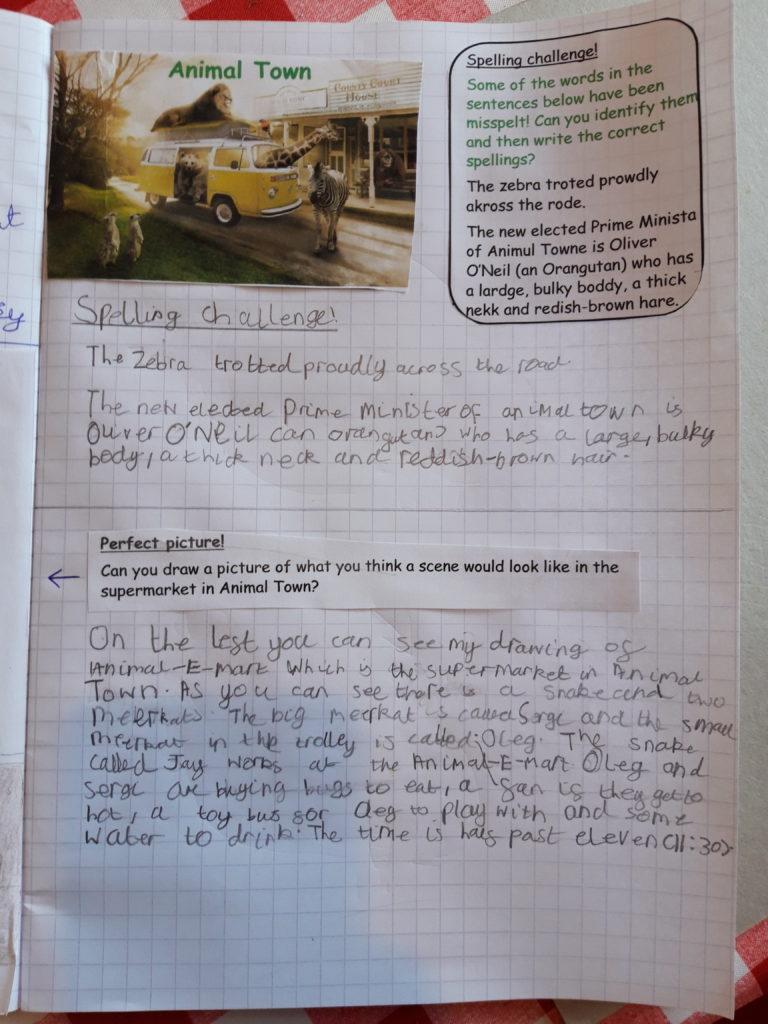 Animal Town
COUNTY COURT
HOUSE
Spelling challenge!
Some of the words in the
sentences below have been
misspelt! Can you identify them
and then write the correct
spellings?
The zebra troted prowdly
akross the rode.
The new elected Prime Minista
of Animul Towne is Oliver
O'Neil (an Orangutan) who has
a lardge, bulky boddy, a thick
nekk and redish-brown hare.
Spelling challenge!
The Zebra trotted proudly across the road.
The new elected Prime Minister of animal town is
Oliver O'Neil (an orangutan) who has a large, bulky
body, a thick neck and reddish-brown hair.
Perfect picture!
Can you draw a picture of what you think a scene would look like in the
supermarket in Animal Town?
On the left you can see my drawing of
Animal-E-mart which is the supermarket in Animal
Town. As you can see there is a snake and two
meerkats. The big meerkat is called Sergi and the small
meerkat in the trolley is called: Oleg. The snake
called Jay works at the Animal-E-mart Oleg and
Sergi are buying bugs to eat, a fan if they get to
hot, a toy bus for Oleg to play with and some
water to drink. The time is half past eleven (11:30)